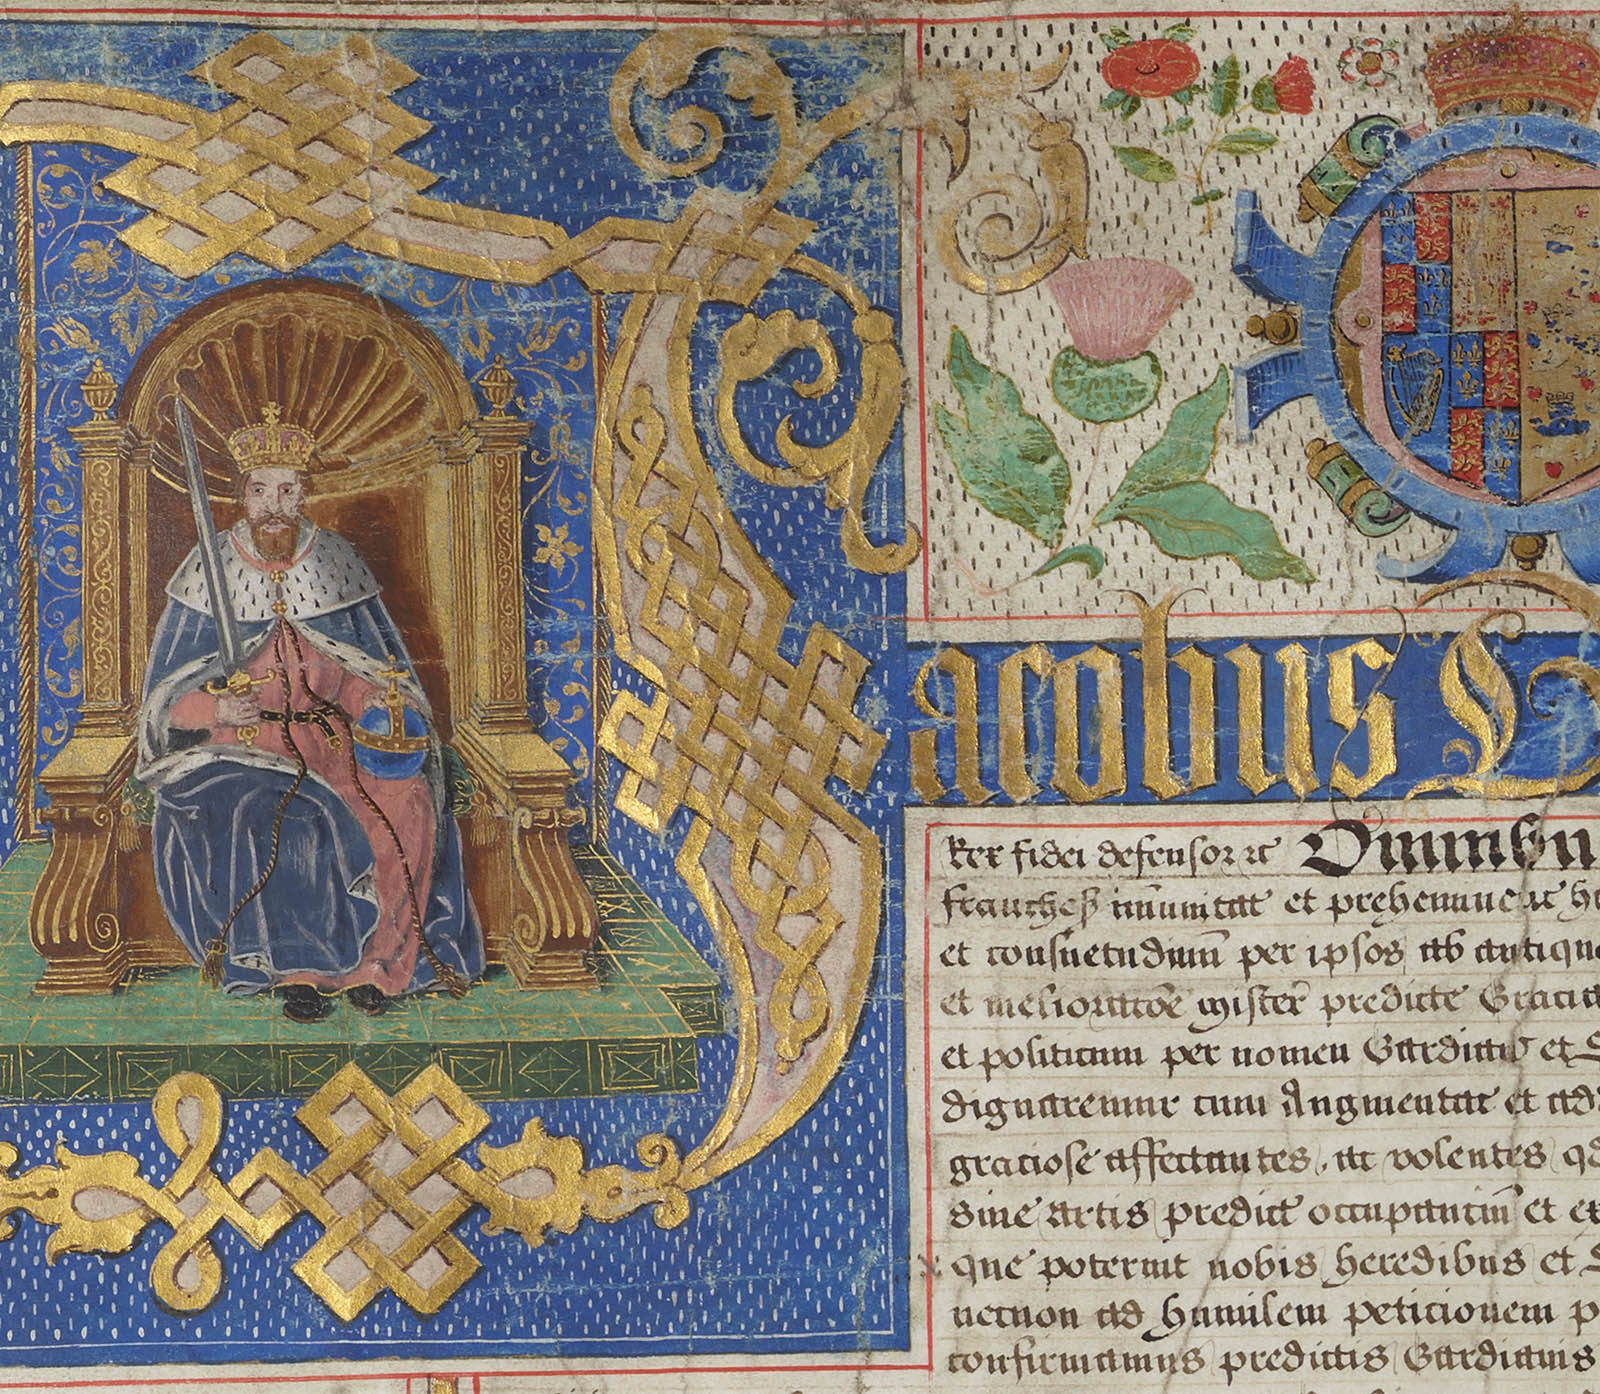 Jacobus D
Rex fidei defensor ꝛc Omnibu
franches im̃unitat et prehemineñc
et consuetudinũ per ipsos ab antiquo
et meliorac̃oẽ mister̃ predicte Gracia
et politicum per nomen Gardian̄ et S
dignaremur cum Augmentac̃ et add
graciose affectantes, ac volentes qd
sine Artis predict occupantium̃ et ex
que poterint nobis heredibus et S
necnon ad humilem peticionem p
confirmamus predictis Gardianis